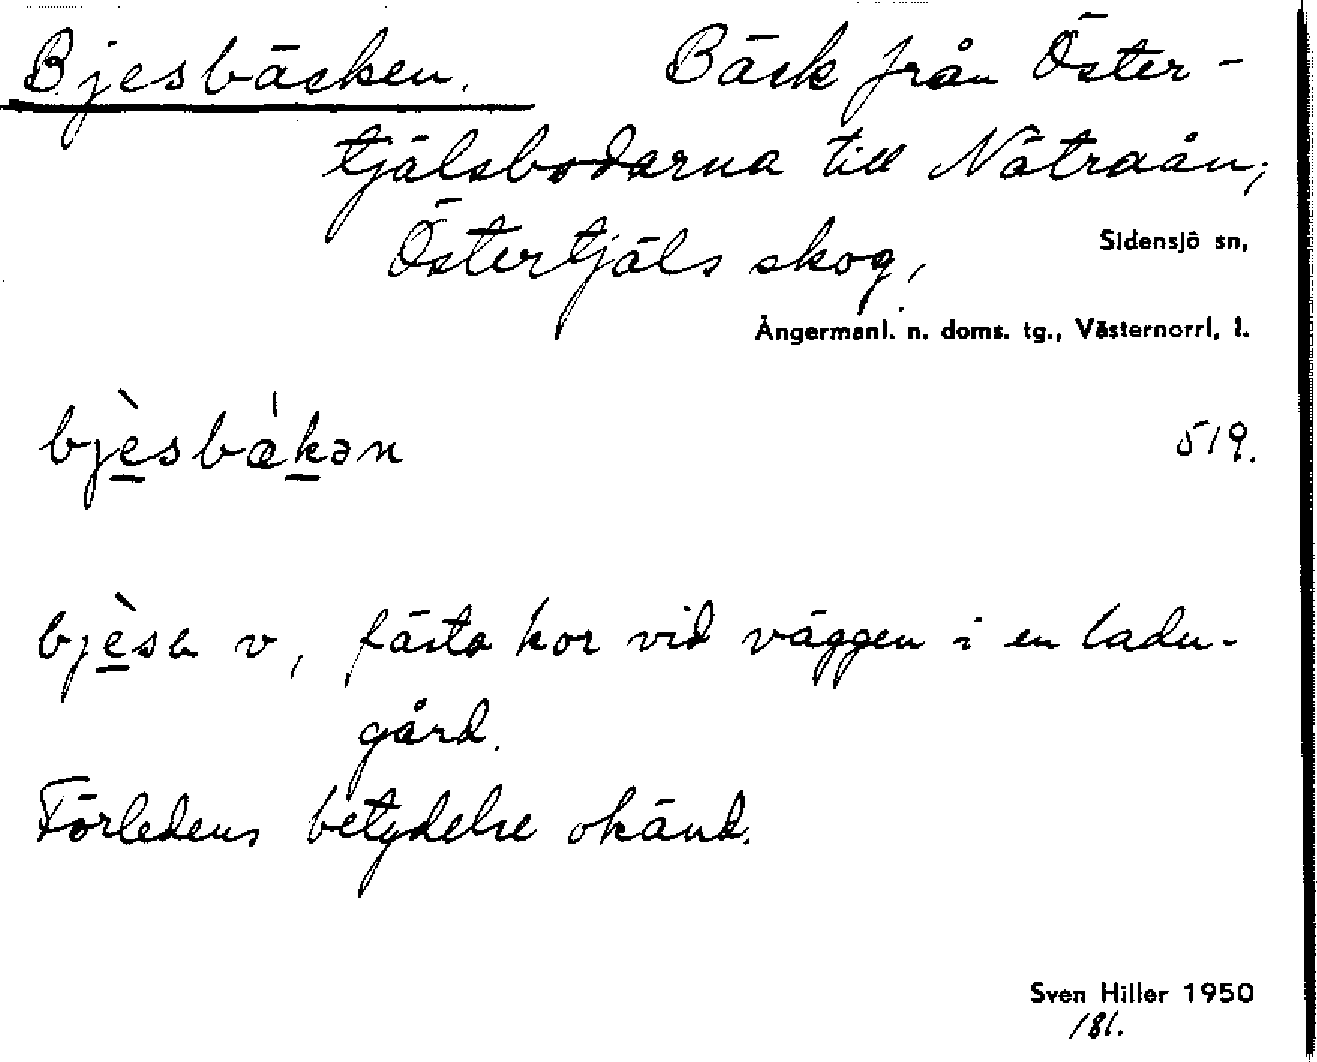 Bjesbäcken. Bäck från Öster-
tjälsbodarna till Nätraån;
Östertjäls skog,
Sidensjö sn,
Ångermanl. n. doms. tg., Västernorrl. l.
bjèsbæ̀kən 519.
bjèsa v, fästa kor vid väggen i en ladu-
gård.
Förledens betydelse okänd.
Sven Hiller 1950
181.